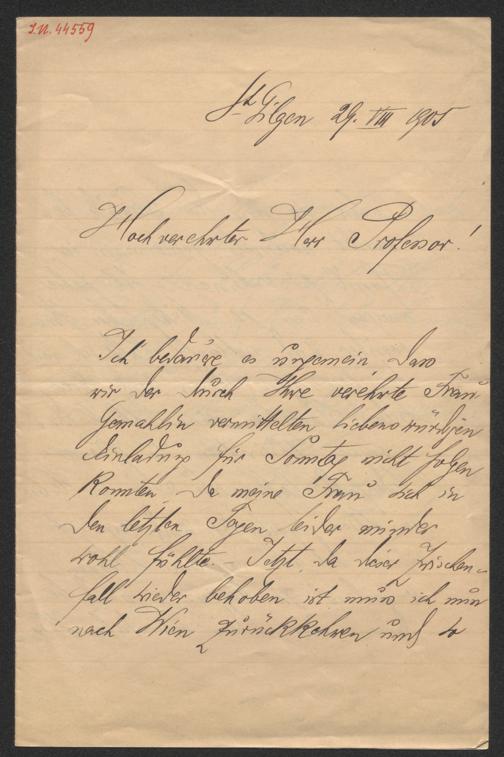 I.N. 44559
St Gilgen 29. VIII 1905
Hochverehrter Herr Professor!
Ich bedaure es ungemein dass
wir der durch Ihre verehrte Frau
Gemahlin vermittelten liebenswürdigen
Einladung für Sonntag nicht folgen
konnten, da meine Frau sich in
den letzten Tagen leider minder
wohl fühlte. – Jetzt, da dieser Zwischen-
fall wieder behoben ist muss ich nun
nach Wien zurückkehren und so